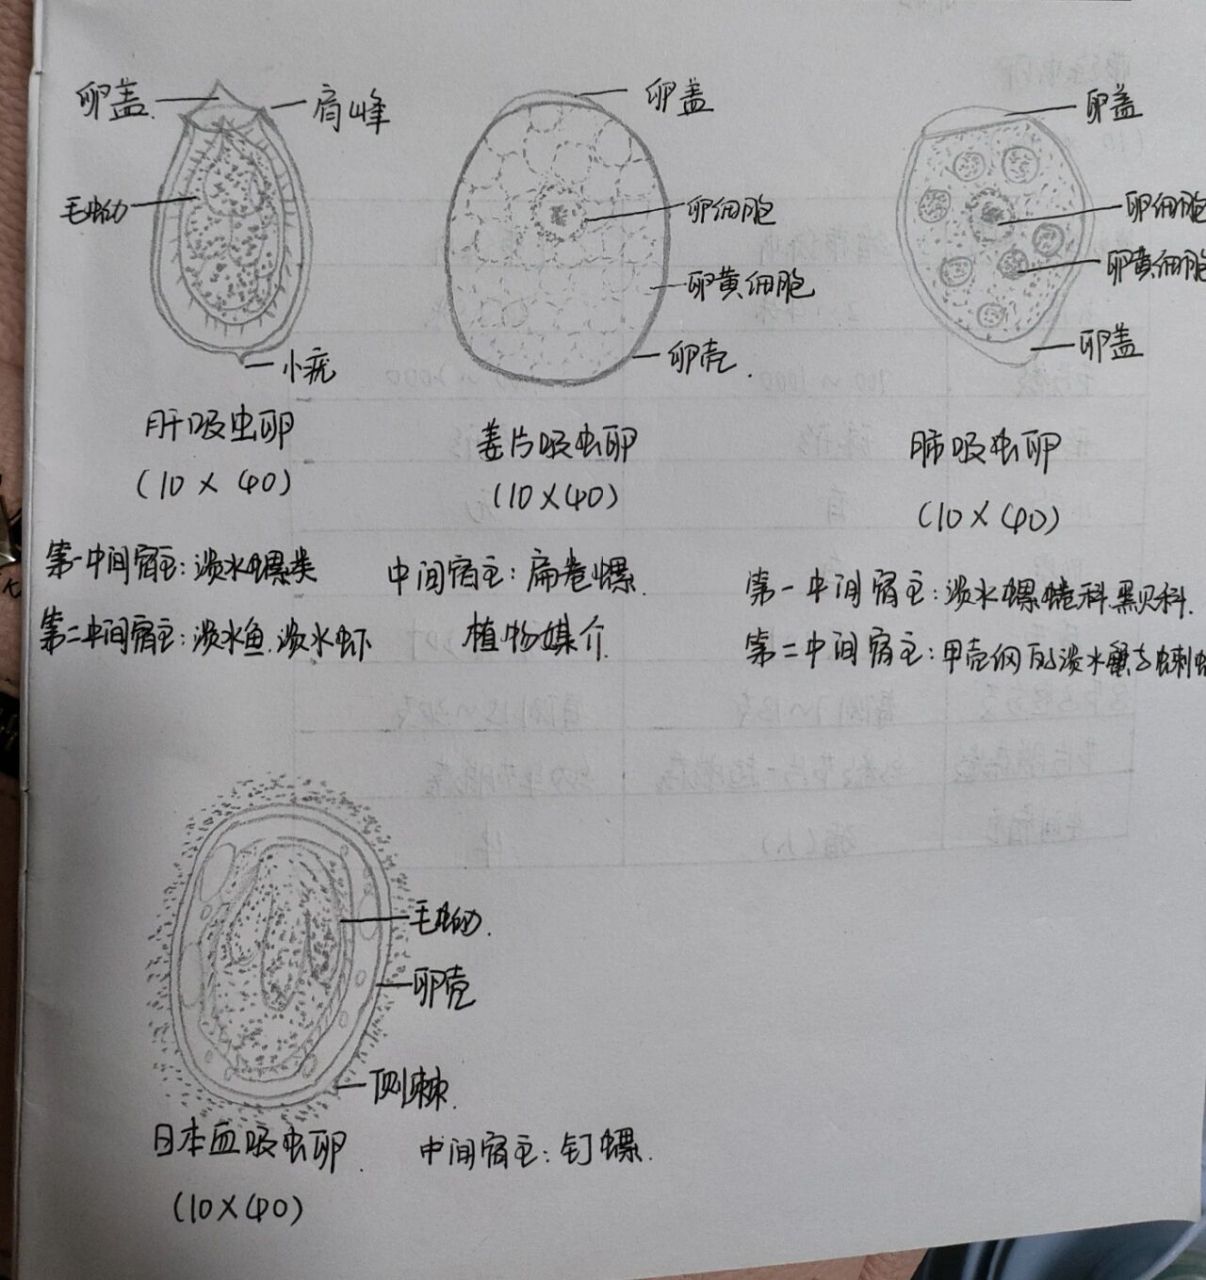 卵盖.
肩峰
毛蚴
小疣
肝吸虫卵
(10 X 40)
第一中间宿主:淡水螺类
第二中间宿主:淡水鱼.淡水虾
卵盖
卵细胞
卵黄细胞
卵壳.
姜片吸虫卵
(10X40)
中间宿主:扁卷螺.
植物媒介.
卵盖
卵细胞
卵黄细胞
卵盖
肺吸虫卵
(10X40)
第一中间宿主:淡水螺蜷科.黑贝科.
第二中间宿主:甲壳纲的淡水蟹与蝲蛄
毛蚴.
卵壳
侧棘.
日本血吸虫卵.
(10X40)
中间宿主:钉螺.